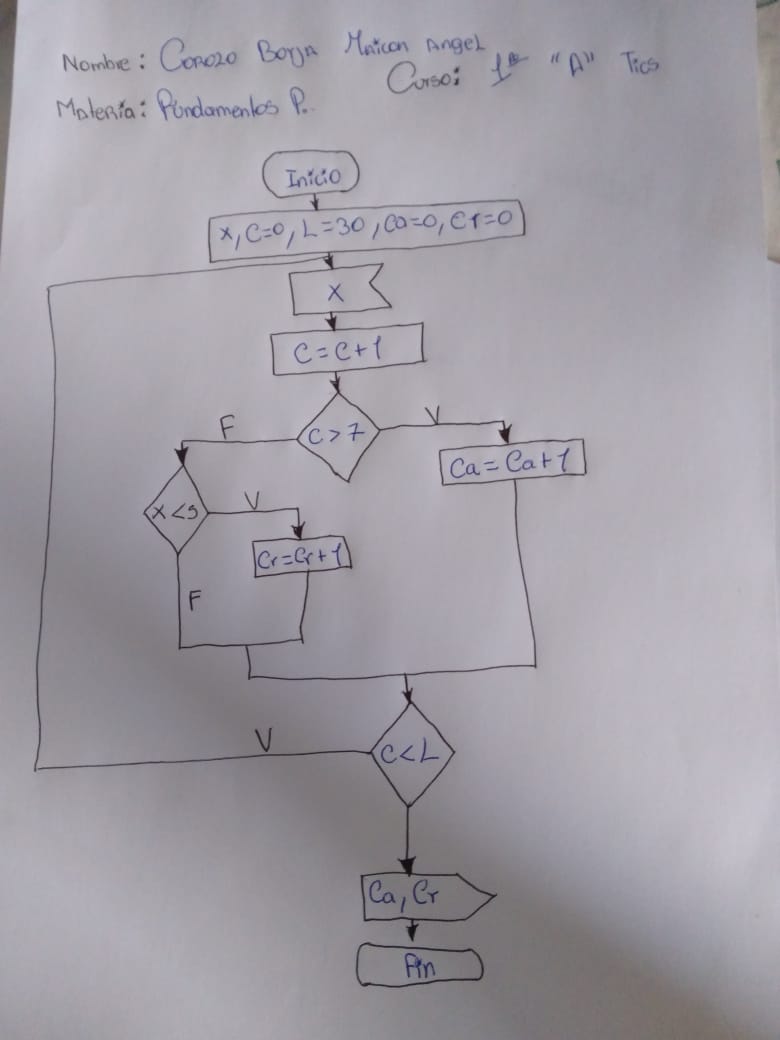 Nombre: Corozo Borja Maicon Angel
Curso: 1º "A" Tics
Materia: Fundamentos P.
Inicio
x, C=0, L=30, Ca=0, Cr=0
x
C=C+1
C>7
F
V
Ca=Ca+1
x<5
V
Cr=Cr+1
F
C<L
V
Ca, Cr
Fin